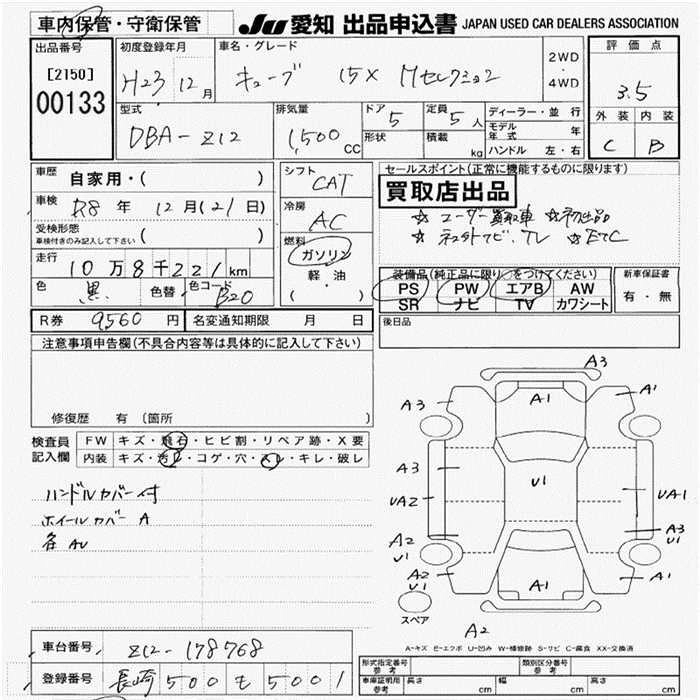 車内保管・守衛保管
JU 愛知 出品申込書 JAPAN USED CAR DEALERS ASSOCIATION
出品番号
[2150]
00133
初度登録年月
H23 12月
車名・グレード
キューブ 15X Mセレクション
2WD
・
4WD
評価点
3.5
外装 内装
C B
型式
DBA-Z12
排気量
1,500 CC
ドア 5
形状
定員 5人
積載 kg
ディーラー・並行
モデル年式 年
ハンドル 左・右
車歴 自家用・( )
車検 R8年 12月(21日)
受検形態
車検付きのみ記入して下さい ( )
走行 10万8千221km
色 黒 色替 色コード B20
シフト
CAT
冷房
AC
燃料
ガソリン
軽・油
( )
セールスポイント(正常に機能するものに限ります)
買取店出品
☆ユーザー買取車 ☆初出品
☆ネットナビ、TV ☆ETC
装備品(純正品に限り○をつけてください)
PS PW エアB AW
SR ナビ TV カワシート
新車保証書
有・無
R券 9,560円 名変通知期限 月 日
後日品
注意事項申告欄(不具合内容等は具体的に記入して下さい)
修復歴 有〔箇所
検査員
記入欄
FW キズ・飛石・ヒビ割・リペア跡・X要
内装 キズ・汚レ・コゲ・穴・スレ・キレ・破レ
ハンドルカバー付
ホイールカバー A
各AU
A3
A3 A1 A1
A3 U1
UA2 UA1
A2 U1 A3 U1
A2 U1 A1 A1
スペア
A2
A-キズ E-エクボ U-凹み W-補修跡 S-サビ C-腐食 XX-交換済
車台番号 Z12-178768
登録番号 長崎 500 も 5001
形式指定番号
参考
類別区分番号
参考
車庫証明用
参考
長さ cm 幅 cm 高さ cm